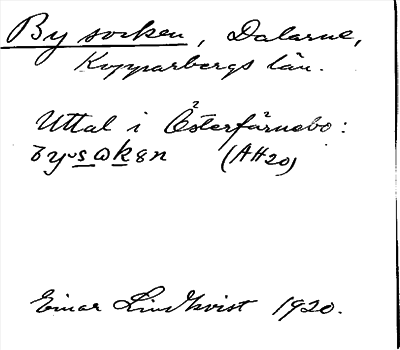 By socken, Dalarne,
Kopparbergs län.
Uttal i Österfärnebo:
(AH20)
Einar Lindkvist 1920.